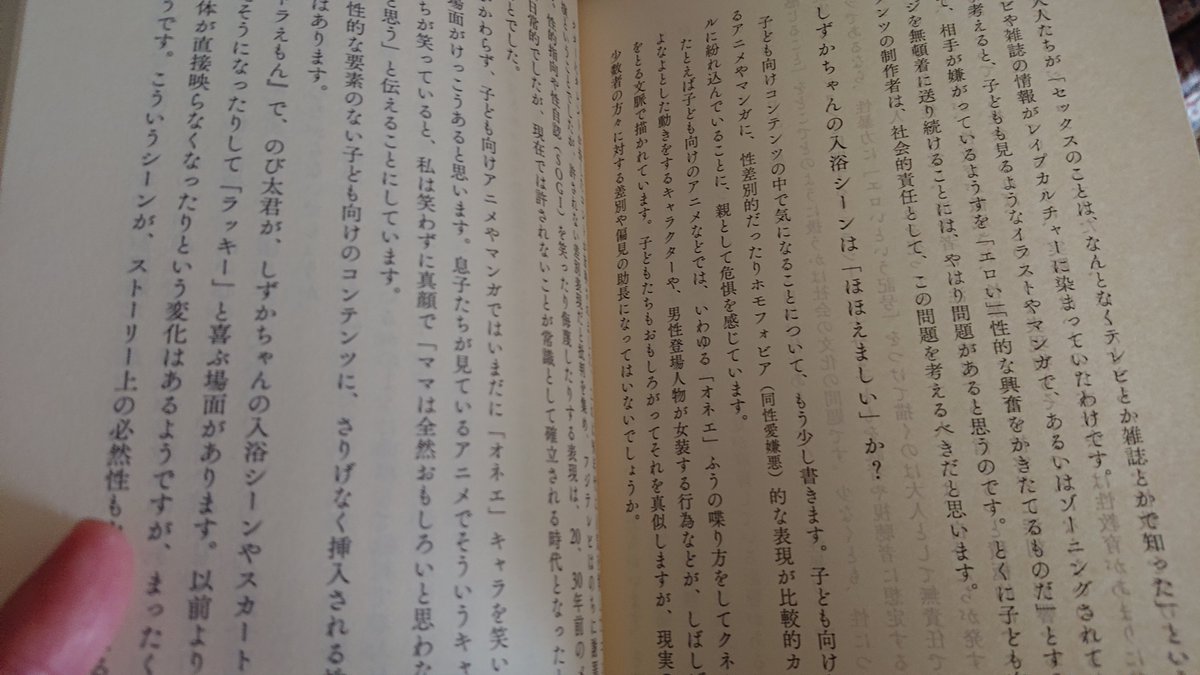 人たちが「セックスのことは、なんとなくテレビとか雑誌とかで知った」とい
ビや雑誌の情報がレイプカルチャーに染まっていたわけです。
考えると、子どもも見るようなイラストやマンガで、あるいはゾーニングされて
て、相手が嫌がっているようすを「エロい」「性的な興奮をかきたてるものだ」とす
ジを無頓着に送り続けることには、やはり問題があると思うのです。とくに子ども
ンツの制作者は、社会的責任として、この問題を考えるべきだと思います。
しずかちゃんの入浴シーンは「ほほえましい」か?
子ども向けコンテンツの中で気になることについて、もう少し書きます。子ども向け
るアニメやマンガに、性差別的だったりホモフォビア(同性愛嫌悪)的な表現が比較的カ
ルに紛れ込んでいることに、親として危惧を感じています。
たとえば子ども向けのアニメなどでは、いわゆる「オネエ」ふうの喋り方をしてクネ
よなよとした動きをするキャラクターや、男性登場人物が女装する行為などが、しばし
をとる文脈で描かれています。子どもたちもおもしろがってそれを真似しますが、現実
少数者の方々に対する差別や偏見の助長になってはいないでしょうか。
性的指向や性自認(SOGI)を笑ったり侮蔑したりする表現は、20、30年前の
日常的でしたが、現在では許されないことが常識として確立される時代となった
とでした。
かわらず、子ども向けアニメやマンガではいまだに「オネエ」キャラを笑い
場面がけっこうあると思います。息子たちが見ているアニメでそういうキャ
ちが笑っていると、私は笑わずに真顔で「ママは全然おもしろいと思わな
と思う」と伝えることにしています。
性的な要素のない子ども向けのコンテンツに、さりげなく挿入される
はあります。
ラえもん』で、のび太君が、しずかちゃんの入浴シーンやスカート
そうになったりして「ラッキー」と喜ぶ場面があります。以前より
体が直接映らなくなったりという変化はあるようですが、まったく
うです。こういうシーンが、ストーリー上の必然性も